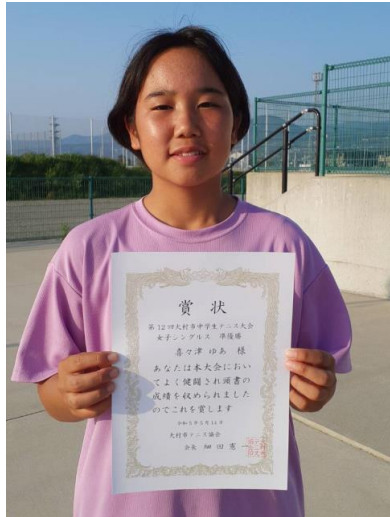 賞状
第12回大村市中学生テニス大会
女子シングルス 準優勝
喜々津 ゆあ 様
あなたは本大会におい
てよく健闘され頭書の
成績を収められました
のでこれを賞します
大村市テニス協会
会長 細田憲一